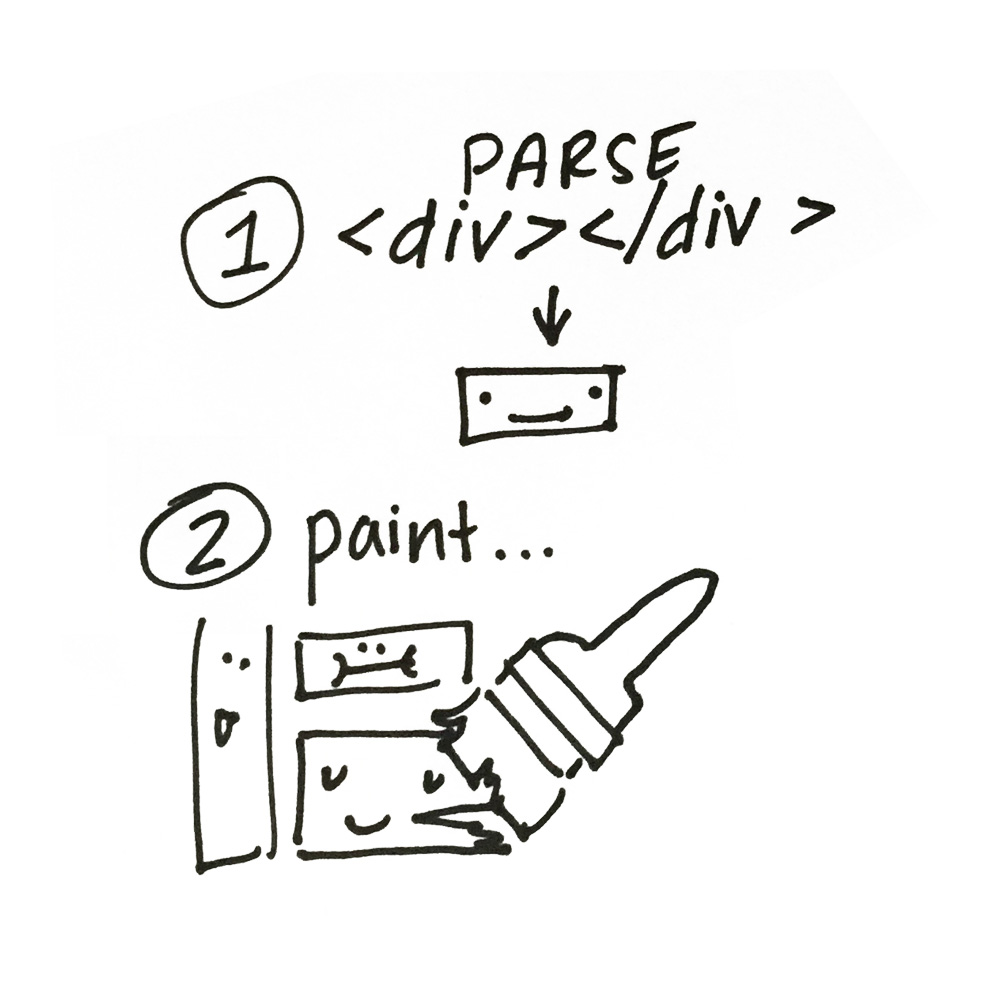 PARSE
1 <div></div>
2 paint...